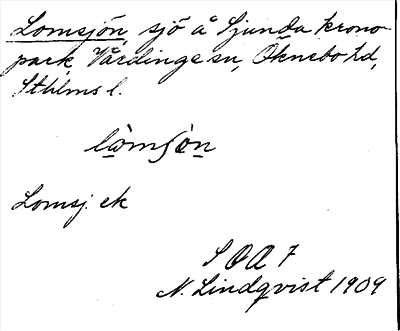 Lomsjön, sjö å Sjunda krono
park, Vårdinge sn, Öknebo hd,
Sthlms l.
lòmʃòn
Lomsj. ek
S O A 7
N. Lindqvist 1909